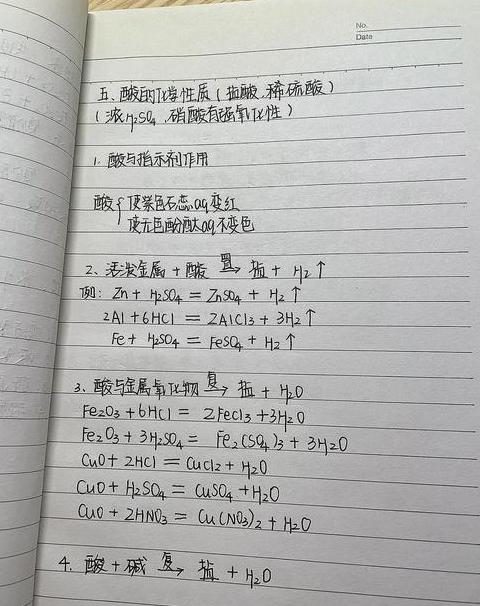 No.
Date
五、酸的化学性质(盐酸、稀硫酸)
(浓H₂SO₄、硝酸有强氧化性)
1. 酸与指示剂作用
酸{ 使紫色石蕊aq变红
使无色酚酞aq不变色
2、活泼金属 + 酸 置→ 盐 + H₂↑
例: Zn + H₂SO₄ = ZnSO₄ + H₂↑
2Al + 6HCl = 2AlCl₃ + 3H₂↑
Fe + H₂SO₄ = FeSO₄ + H₂↑
3、酸与金属氧化物 复→ 盐 + H₂O
Fe₂O₃ + 6HCl = 2FeCl₃ + 3H₂O
Fe₂O₃ + 3H₂SO₄ = Fe₂(SO₄)₃ + 3H₂O
CuO + 2HCl = CuCl₂ + H₂O
CuO + H₂SO₄ = CuSO₄ + H₂O
CuO + 2HNO₃ = Cu(NO₃)₂ + H₂O
4. 酸 + 碱 复→ 盐 + H₂O